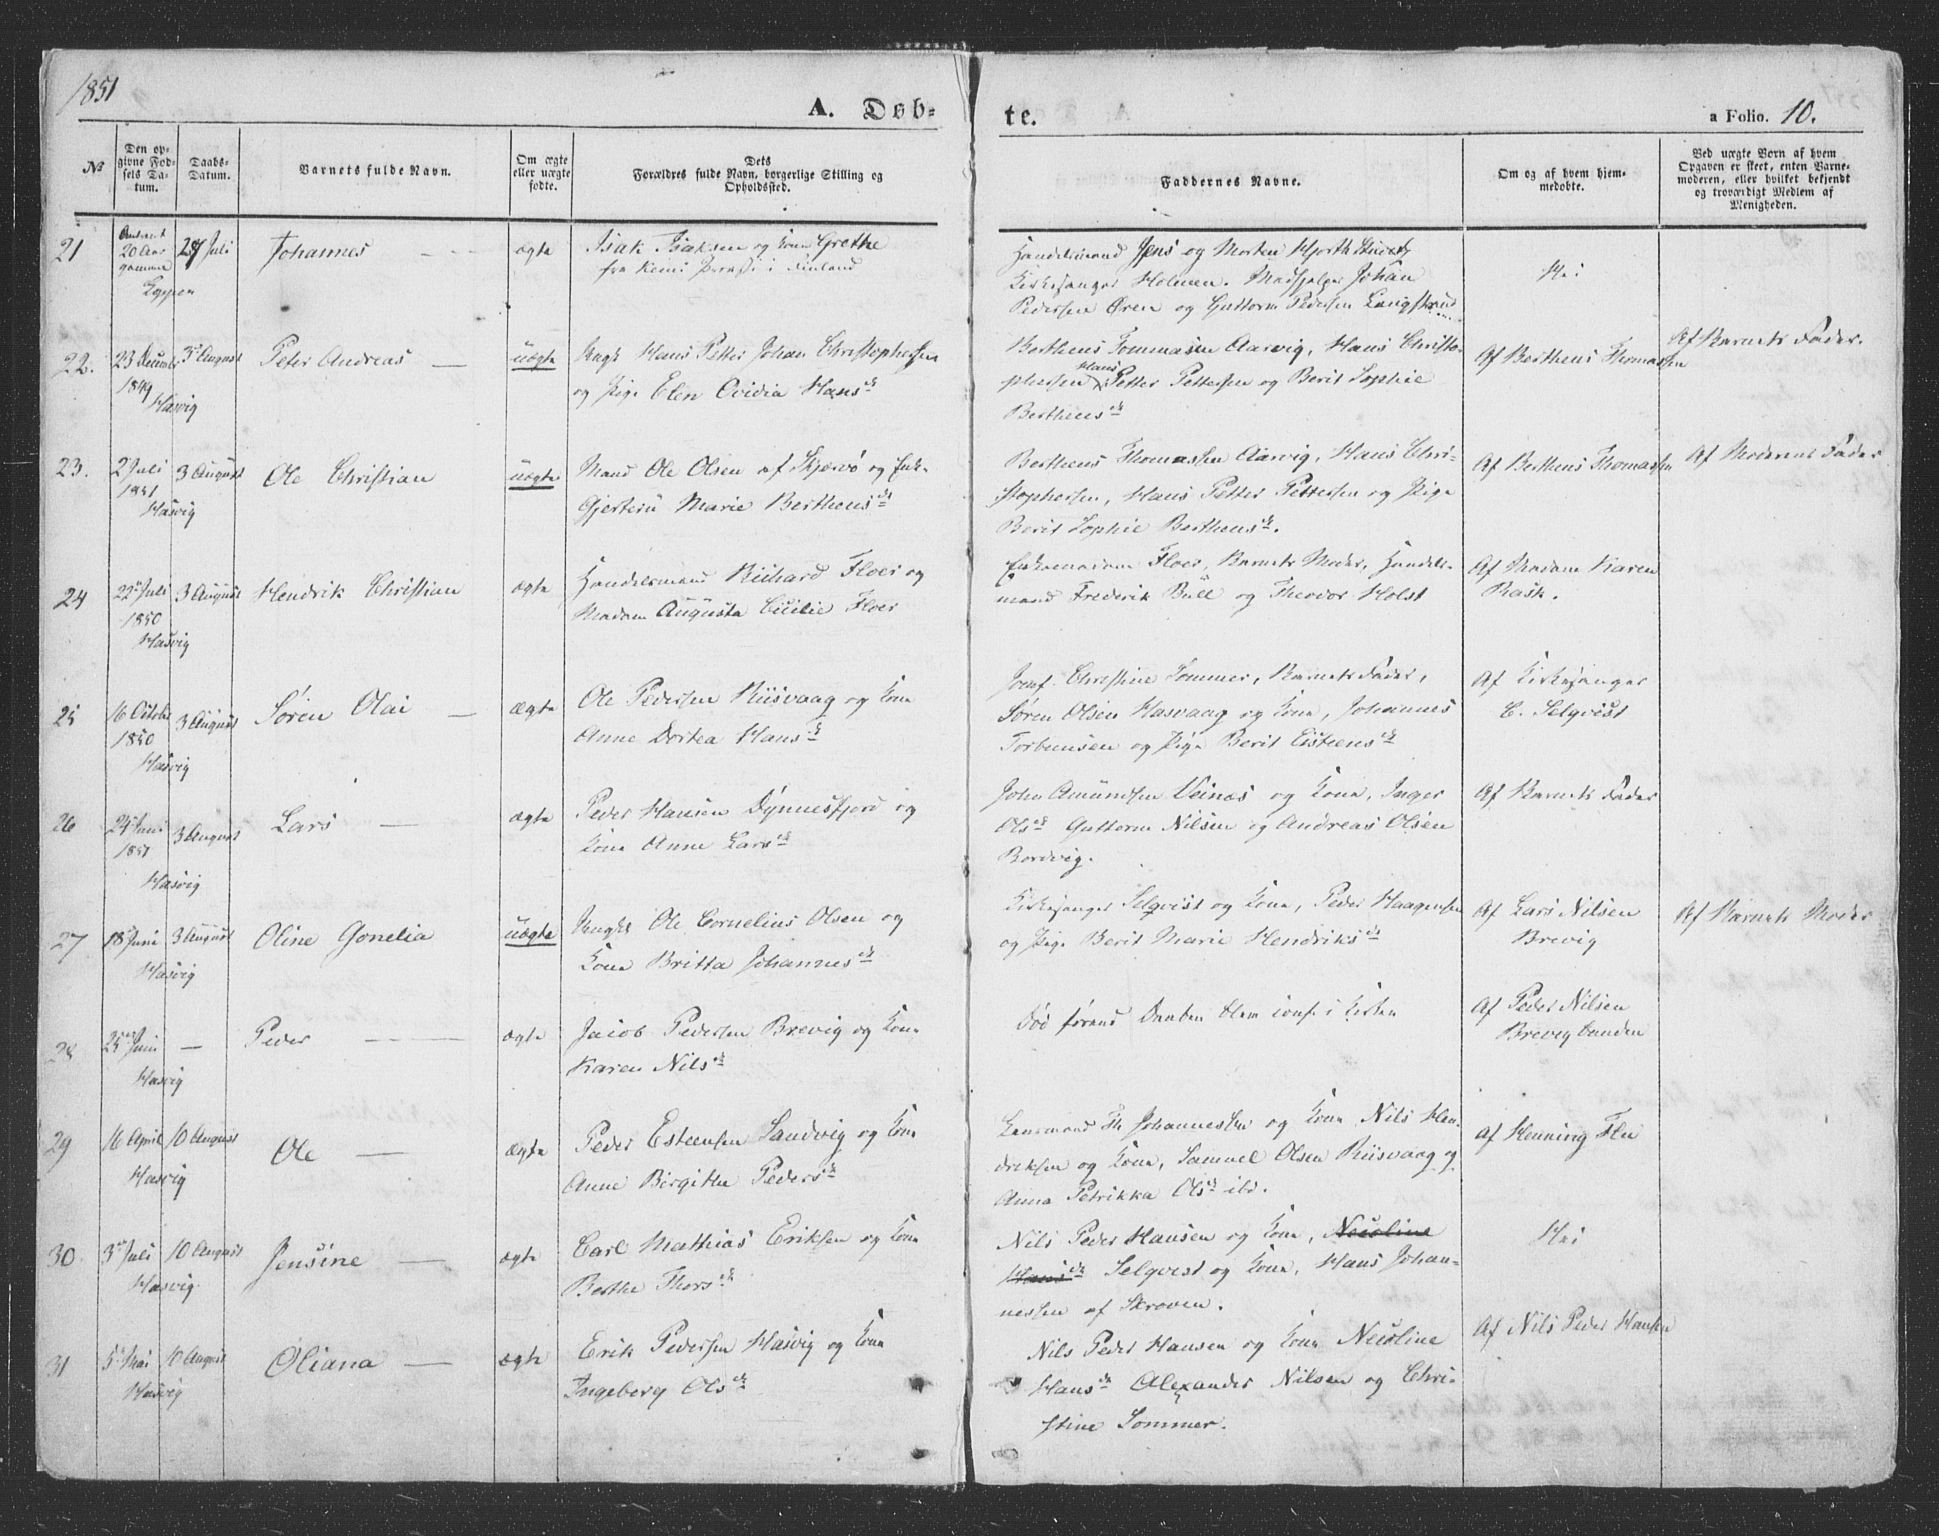 1851
A. Døb-
te.
a Folio. 10.
№
Den op-
givne Fød-
sels Da-
tum.
Daabs-
Datum.
Barnets fulde Navn.
Om ægte
eller uægte
fødte.
Dets
Forældres fulde Navn, borgerlige Stilling og
Opholdssted.
Faddernes Navne.
Om og af hvem hjem-
medøbte.
Ved uægte Børn af hvem
Opgaven er skeet, enten Barne-
moderen, eller hvilket bekjendt
og troværdigt Medlem af
Menigheden.
21
20 Aar
gammel
Juli
Johannes
ægte
Isak Isaksen og Kone Grethe
fra Kemi i Finland
Handelsmand Jens og Morten Hjorth
Kirkesanger Holmen. Johan
Pedersen Øren og Guttorm Pedersen
Nei
22.
23 December
1849
Hasvig
3 August
Peter Andreas —
uægte
Ungk Hans Petter Johan Christophersen
og Pige Elen Ovidia Hansdr
Berthens Tommasen Aarvig, Hans Christo-
phersen Hans Petter Pettersen og Berit Sophie
Berthensdr
Af Berthens Thomassen
Af Barnets Fader.
23.
2 Juli
1851
Hasvig
3 August
Ole Christian
uægte
Mand Ole Olsen af Skjervø og Enke
Marie Berthensdr
Berthens Thomassen Aarvig, Hans Chri-
stophersen, Hans Petter Pettersen og Pige
Berit Sophie Berthensdr.
Af Berthens Thomassen
Af Moderens Fader
24
22 Juli
1850
Hasvig
3 August
Hendrik Christian
ægte
Handelsmand Richard Floer og
Madam Augusta Cicilie Floer
Enkemadam Floer, Barnets Moder, Handels-
mand Frederik Bull og Theodor Holst
Af Madam Karen
Rask.
25
16 October
1850
Hasvig
3 August
Søren Olai —
ægte
Ole Pedersen Riisvaag og Kone
Anne Dortea Hansdr
Jomf. Christine Sommer, Barnets Fader,
Søren Olsen Hasvaag og Kone, Johannes
Torbensen og Pige Berit Eistensdr
Af Kirkesanger
C. Selqvist
26
24 Juni
1851
Hasvig
3 August
Lars —
ægte
Peder Hansen Dynnesfjord og
Kone Anne Larsdr
John Amundsen Veines og Kone, Inger
Olsdr Guttorm Nilsen og Andreas Olsen
Bordvig.
Af Barnets Fader
27
18 Juni
Hasvig
3 August
Oline Gonelia
uægte
Ungk Ole Cornelius Olsen og
Kone Britta Johannesdr
Kirkesanger Selqvist og Kone, Peder Haagensen
og Pige Berit Marie Hendriksdr
Af Lars Nilsen
Brevig
Af Barnets Moder
28
25 Juni
Hasvig
—
Peder — — —
ægte
Jacob Pedersen Brevig og Kone
Karen Nilsdr
Død førend Daaben blev conf. i Kirken
Af Peder Nilsen
Brevigbunden
29
16 April
Hasvig
10 August
Ole —
ægte
Peder Esteensen Sandvig og Kone
Anne Birgithe Pedersdr
Lensmand Th Johannessen og Kone Nils Hen-
driksen og Kone, Samuel Olsen Riisvaag og
Anna Petrikka Olsdr ibd.
Af Henning Flu
30
3 Juli
Hasvig
10 August
Jensine —
ægte
Carl Mathias Eriksen og Kone
Berthe Thorsdr
Nils Peder Hansen og Kone, Nicoline
Hansdr Selqvist og Kone, Hans Johan-
nessen af Skroven.
Nei
31
5 Mai
Hasvig
10 August
Oliana —
ægte
Erik Pedersen Hasvig og Kone
Ingeberg Olsdr
Nils Peder Hansen og Kone Nicoline
Hansdr Alexander Nilsen og Chri-
stine Sommer.
Af Nils Peder Hansen